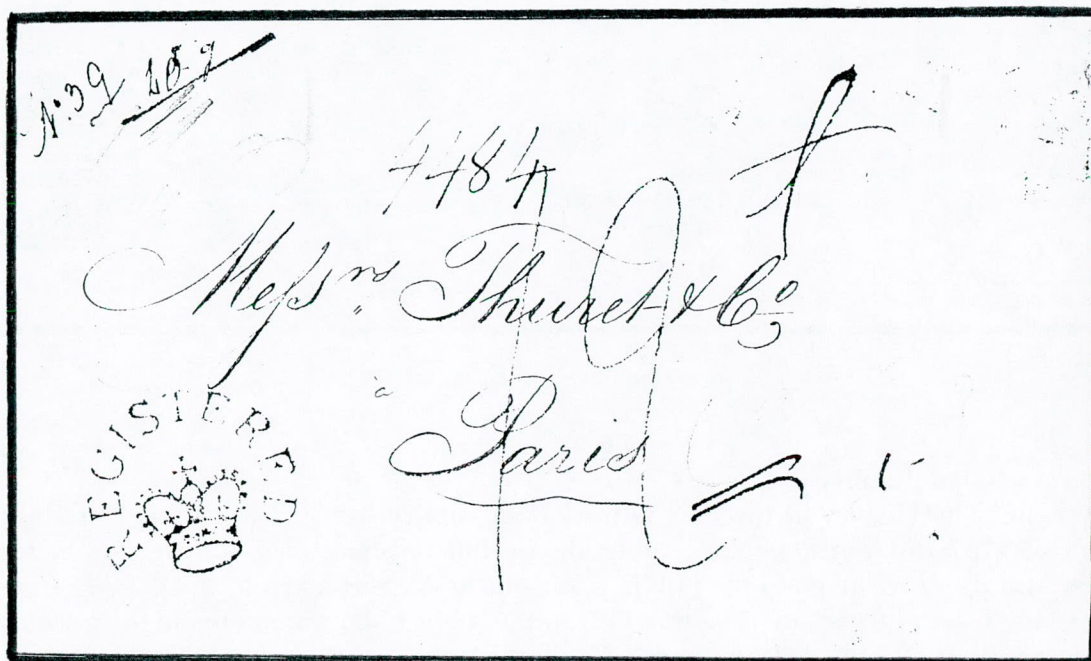 No. 39
4484
Messrs. Thuret & Co
à
Paris
REGISTERED